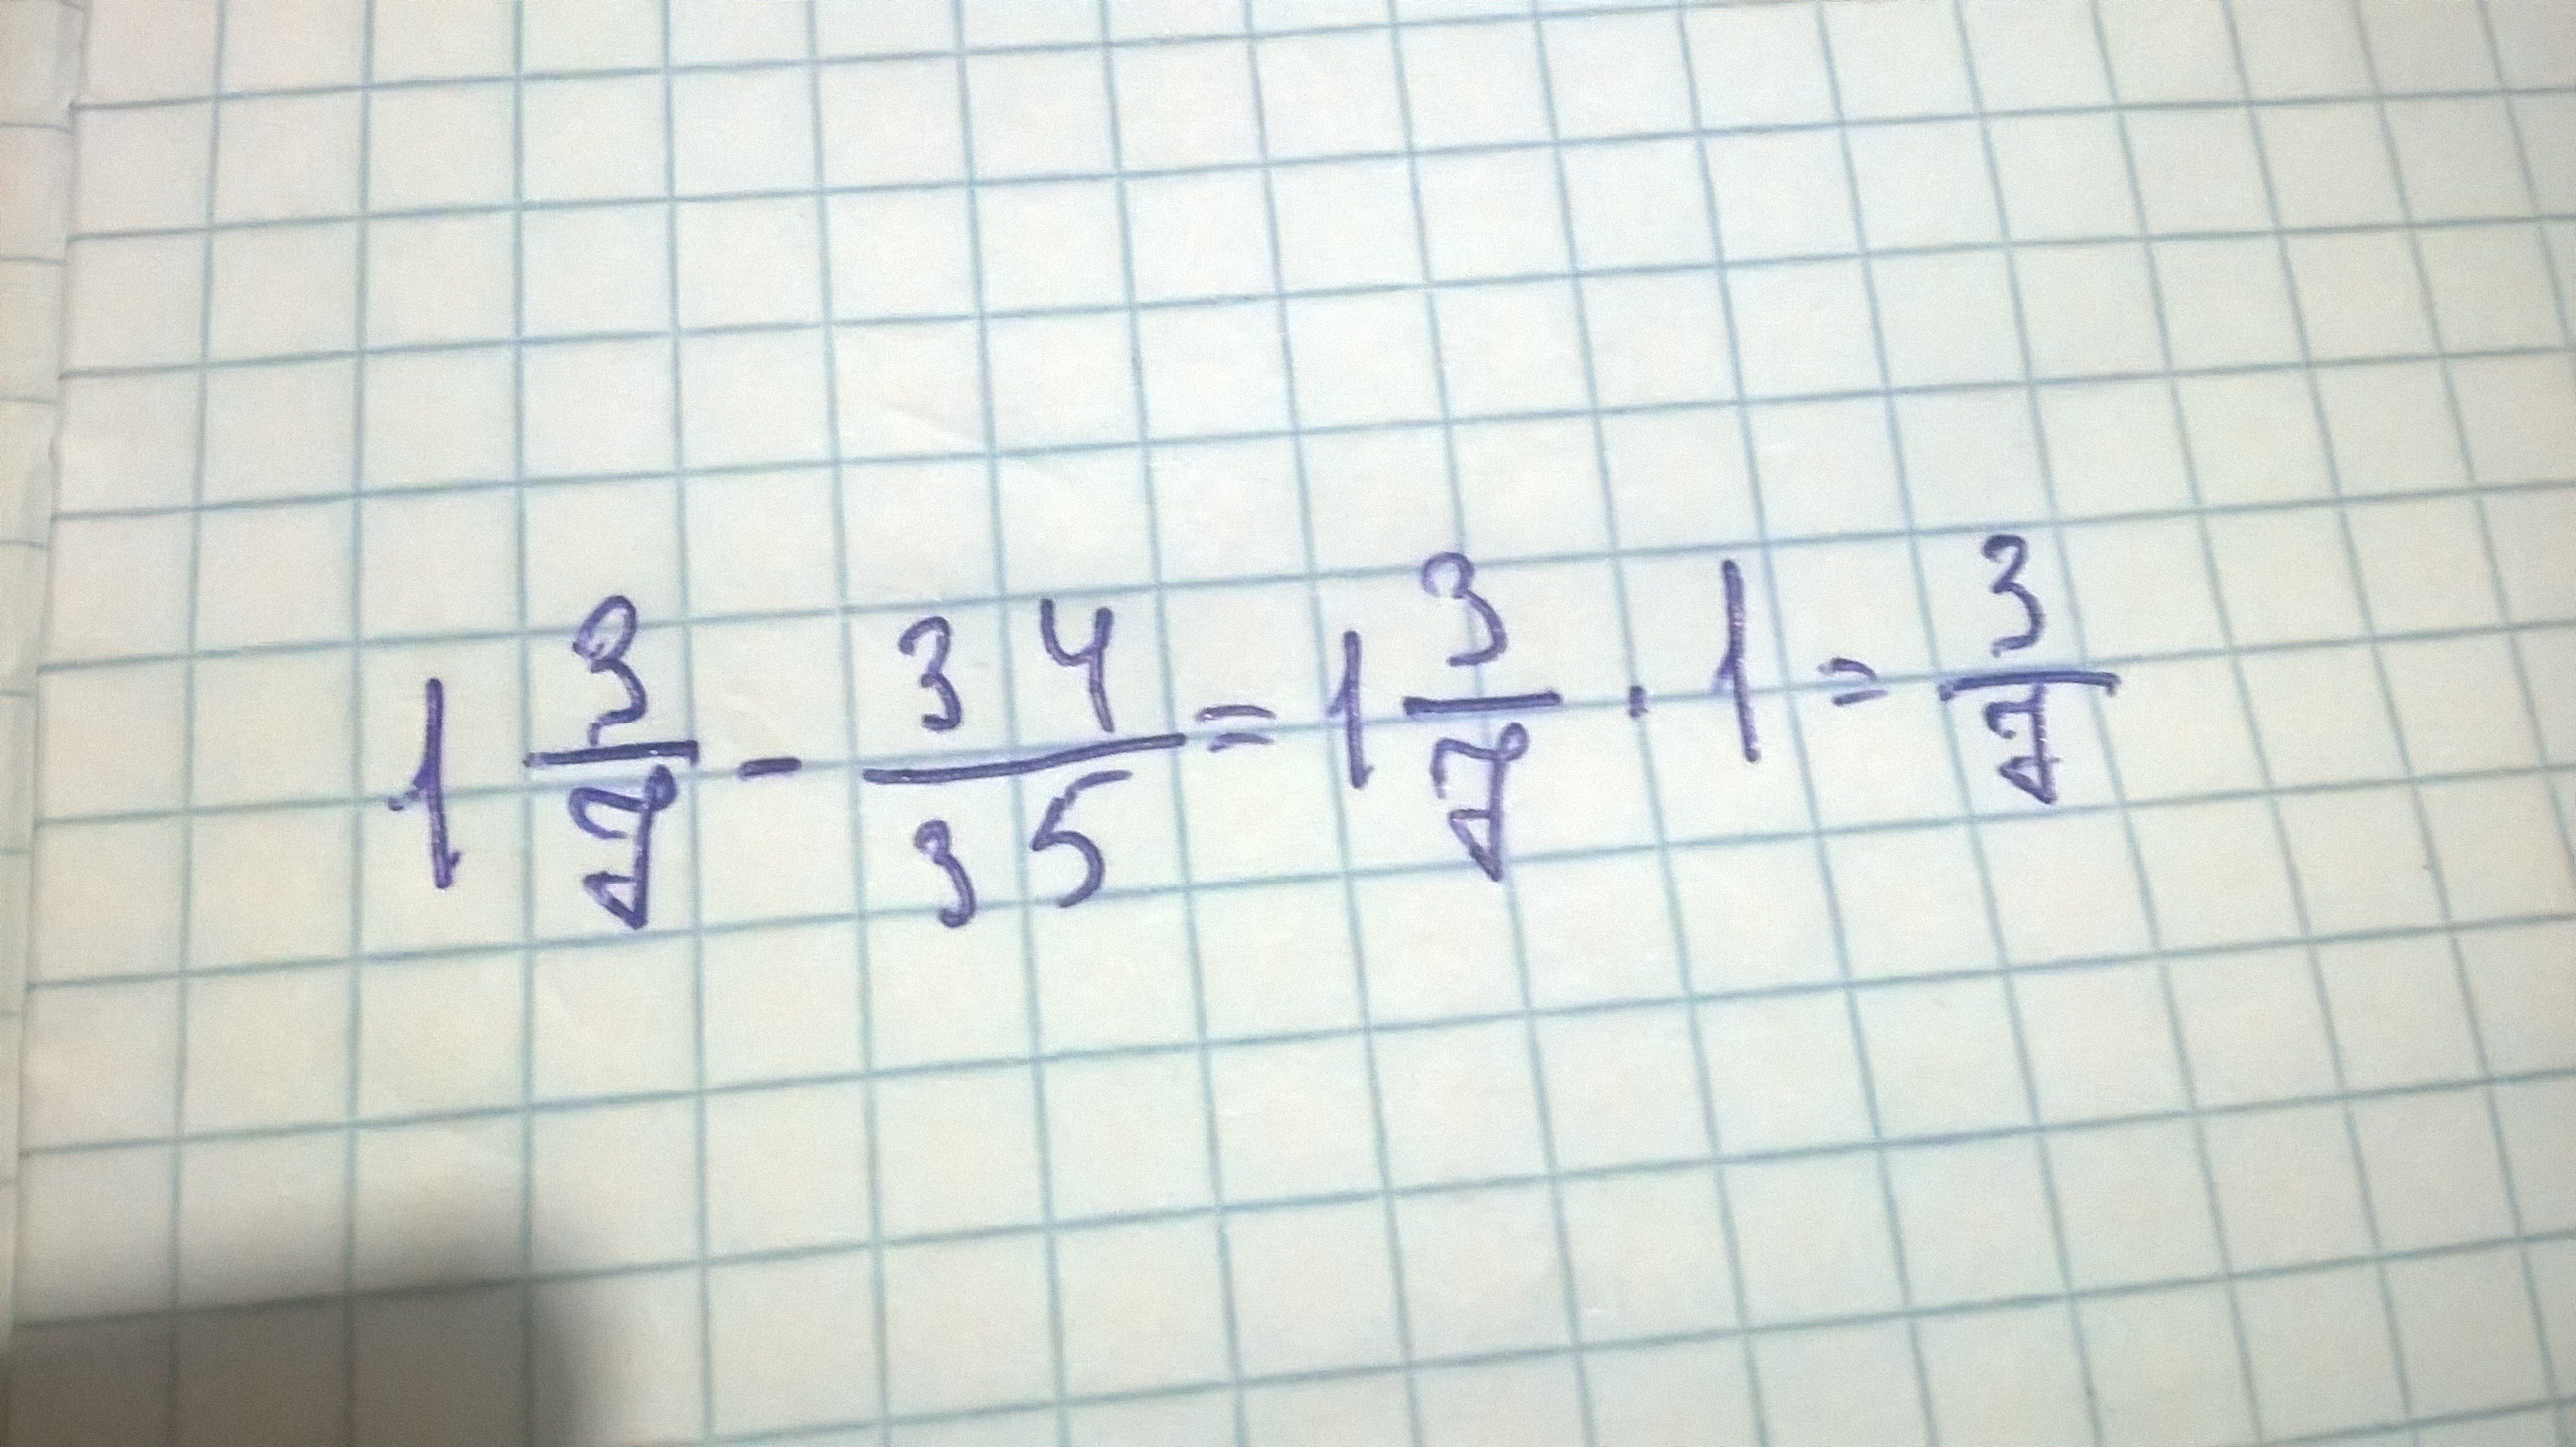 1 3/7 - 34/35 = 1 3/7 · 1 = 3/7